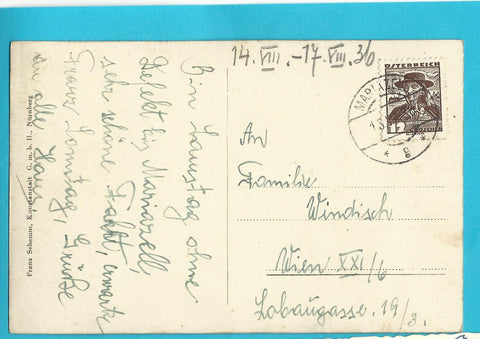 14. VIII. – 17. VIII. 36
Bin Samstag ohne
Defekt bis Mariazell,
sehr schöne Fahrt, erwarte
Franz Sonntag, Grüße
an alle
An
Familie
Windisch
Wien XXI/6
Lobaugasse 19/3.
ÖSTERREICH
12
GROSCHEN
MARIAZELL
Franz Schemm, Kunstanstalt G. m. b. H., Nürnberg